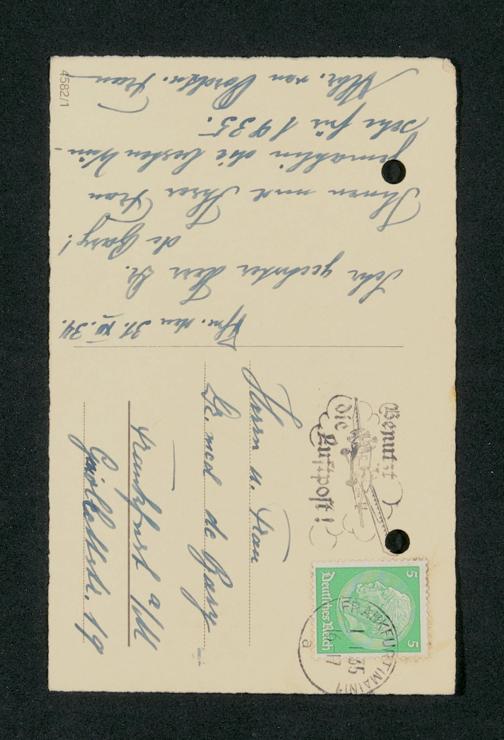 Ffm. den 31. XII. 34.
Sehr geehrter Herr Dr.
de Bary!
Ihnen und Ihrer Frau
Gemahlin die besten Wün-
sche für 1935.
Frau
4582/1
Benutzt
die
Luftpost!
FRANKFURT (MAIN) 1
1 1 35
a
5 5
Deutsches Reich
Herrn u. Frau
Dr. med de Bary
Frankfurt a/M
19